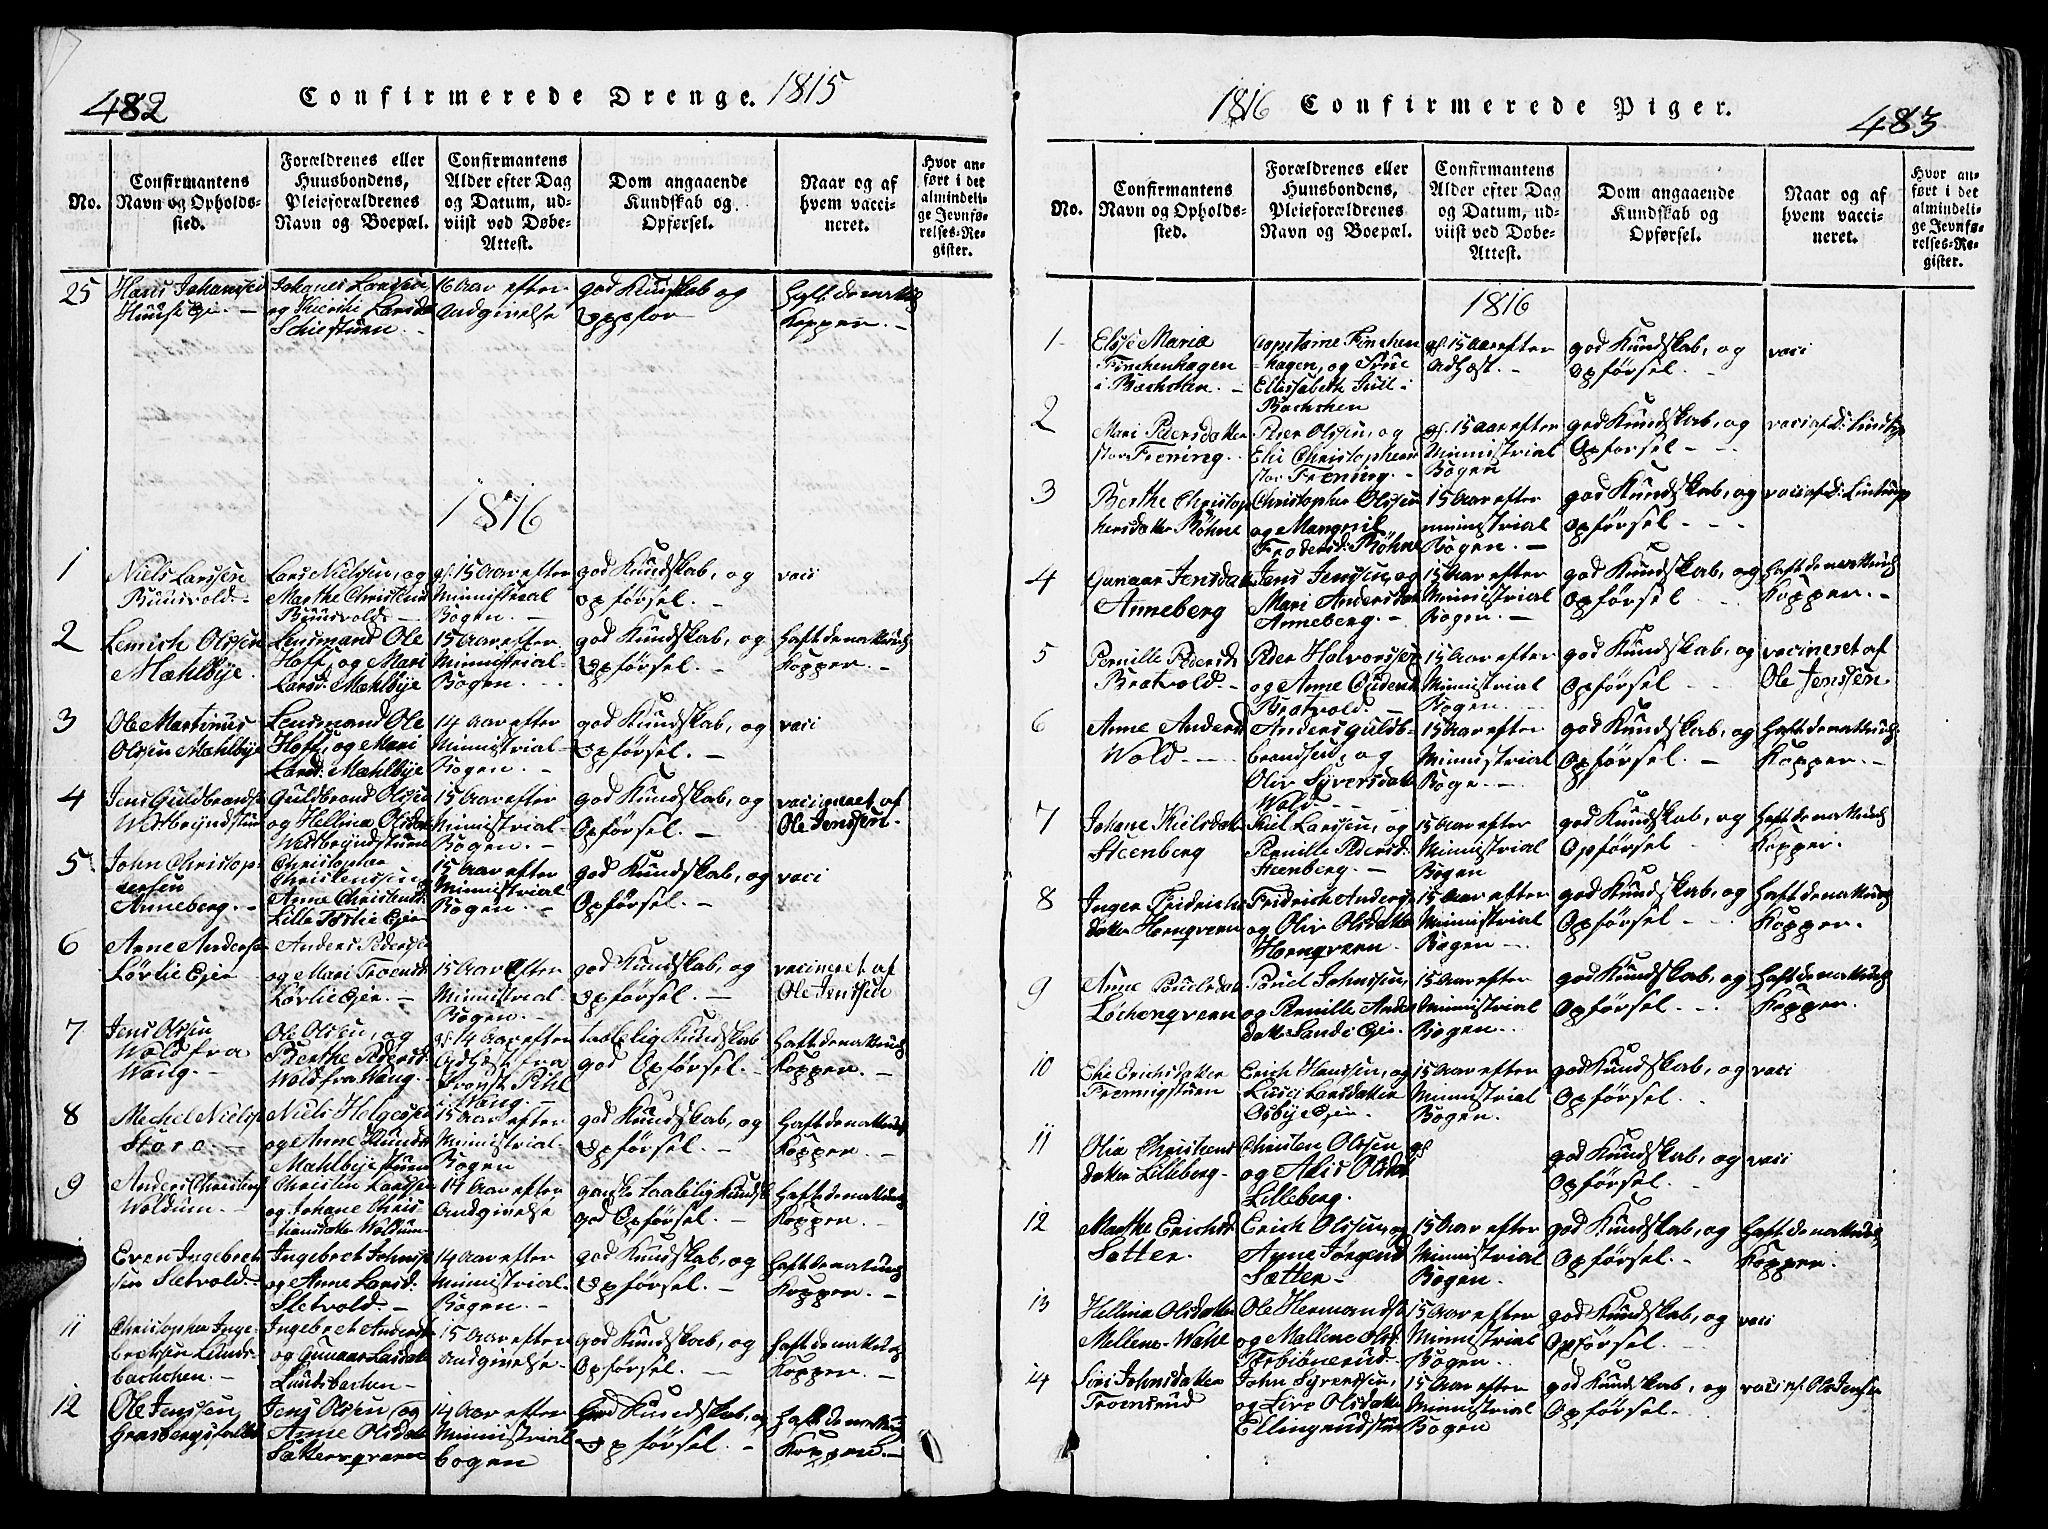 482
Confirmerede Drenge. 1815
No.
Confirmantens
Navn og Opholds-
sted.
Forældrenes eller
Huusbondens,
Pleieforældrenes
Navn og Boepæl.
Confirmantens
Alder efter Dag
og Datum, ud-
viist ved Døbe-
Attest.
Dom angaaende
Kundskab og
Opførsel.
Naar og af
hvem vacci-
neret.
Hvor an-
ført i det
almindeli-
ge Jevnfø-
relses-Re-
gister.
25
Hans Johansen
Huuse Eje. -
Johanes Larssen
og Kiersti Larsda
Schiestuen -
16 Aar efter
Andgivelse
god Kundskab og
Oppfør
haft de nattlig
Kopper. -
1816
1
Niels Larssen
Buusvold. -
Lars Nielssen, og
Marthe Christens
Buusvold. -
gl. 15 Aar efter
Ministrial
Bogen. -
god Kundskab, og
opførsel. -
vaci
2
Lemich Olssen
Mæhlbye.
Lensmand Ole
Hoff, og Mari
Larsd: Mæhlbye
15 Aar efter
Ministrial-
Bogen. -
god Kundskab, og
Opførsel. -
haft de nattlig
Kopper. -
3
Ole Martinus
Olssen Mæhlbye
Lensmand Ole
Hoff, og Mari
Larsd: Mæhlbye
14 Aar efter
Ministrial-
Bogen. -
god Kundskab, og
Opførsel. -
vaci
4
Jens Guldbrands
Westbryndstuen
Guldbrand Olssen
og Hellina Olsda
Westbryndstuen
15 Aar efter
Ministrial-
Bogen. -
god Kundskab, og
Opførsel. -
vacineret af
Ole Jenssen. -
5
John Christop-
hersen
Anneberg. -
Christopher
Christenssen og
Anne Christensd:
Lille Tørlie Ejer
15 Aar efter
Ministrial
Bogen. -
god Kundskab, og
Opførsel. -
vaci
6
Arne Anderse
Lørlie Ejer
Anders Pederssen
og Mari Troensd
Lørlie Ejer. -
15 Aar efter
Ministrial.
Bogen. -
god Kundskab, og
opførsel. -
vacineret af
Ole Jenssen
7
Jens Olssen
Wold fra
Wang. -
Ole Olssen, og
Berthe Pedersd:
Wold fra Wang. -
gl. 14 Aar efter
Adtæst fra
Provst Pihl
i Wang. -
taalelig Kundskab
god Opførsel. -
haft de nattlig
Kopper. -
8
Mechel Nielss
Hora. -
Niels Helgessen
og Anne Knuds
Mæhlbye stuen
15 Aar efter
Ministrial-
Bogen
god Kundskab, og
opførsel. -
haft de nattlig
Kopper. -
9
Anders Christens
Woldum. -
Christen Larssen
og Johane Chris-
tiansdatter Woldum
19 Aar efter
Andgivelse
ganske taalelig Kundsk
god Opførsel. -
haft de nattlig
Kopper. -
Even Ingebret
sen Sletvold. -
Ingebret Johnss
og Anne Larsd:
Sletvold. -
14 Aar efter
Ministrial-
Bogen. -
god Kundskab, og
Opførsel. -
haft de nattlig
Kopper. -
11
Christopher Inge-
bretssen Lunds-
bachchen. -
Ingebret Anders
og Gunaar Larsda
Lundsbachen -
15 Aar efter
andgivelse -
god Kundskab, og
Opførsel. -
haft de nattlig
Kopper. -
12
Ole Jenssen
Grasbergsfallet
Jens Olssen og
Anne Olsda
Sætterqværn
14 Aar efter
Ministrial
bogen
God Kundskab, og
Opførsel. -
haft de nattlig
Kopper. -
1816
Confirmerede Piger.
483
No.
Confirmantens
Navn og Opholds-
sted.
Forældrenes eller
Huusbondens,
Pleieforældrenes
Navn og Boepæl.
Confirmantens
Alder efter Dag
og Datum, ud-
viist ved Døbe-
Attest.
Dom angaaende
Kundskab og
Opførsel.
Naar og af
hvem vacci-
neret.
Hvor an-
ført i det
almindeli-
ge Jevnfø-
relses-Re-
gister.
1816
1
Elsse Maria
Finchenhagen
i Bachchen. -
Finchen
-hagen, og
Ellisabeth Jull i
Bachchen
gl. 15 Aar efter
Adtæst. -
god Kundskab, og
opførsel. -
vaci
2
Mari Pedersdatter
stor Frening.
Peder Olssen, og
Eli Christophers
stor Frening. -
gl. 15 Aar efter
Ministrial
Bogen
god Kundskab, og
Opførsel - - -
vaci af D: Lindtrup
3
Berthe Christop
hersdatter Bøhne
Christopher Olssen
og Mangnil
Frodersd: Bøhne
15 Aar efter
ministrial
Bogen. -
god Kundskab, og
Opførsel - - -
vaci af D: Lintrup
4
Gunaar Jensdatt
Anneberg
Jens Jenssen, og
Mari Andersdat
Anneberg. -
15 Aar efter
Ministrial
Bogen. -
god Kundskab, og
Opførsel
haft de nattlig
Kopper. -
5
Pernille Pedersd
Bratvold. -
Peder Halvorssen
og Anne
Bratvold. -
15 Aar efter
Ministrial
Bogen.
god Kundskab, og
Opførsel
vacineret af
Ole Jenssen.
6
Anne Anders
Wold. -
Anders Guldb-
brandsen, og
Oliv Syversdatt
Wold -
15 Aar efter
Ministrial
Boge. -
god Kundskab, og
Opførsel. -
haft de nattlig
Kopper. -
7
Johane Kielsdatt
Steenberg
Kiel Larssen, og
Pernille Pedersd:
Steenberg. -
15 Aar efter
Ministrial
Bogen
god Kundskab, og
Opførsel -
haft de nattlig
Kopper.
8
Inger Fridrichs
datter Hornqvern
Fridrich Anders
og Oliv Olsdatte
Hornqvern.
15 Aar efter
Ministrial
Bogen -
god Kundskab, og
Opførsel - -
haft de nattlig
Kopper.
9
Anne Pouelsdat
Løchenqvern
Pouel Johnssen,
og Pernille Anders
datter Sande Ejer.
15 Aar efter
Ministrial
Bogen.
god Kundskab, og
Opførsel. -
haft de nattlig
Kopper.
10
Elie Erichsdatter
Freningstuen
Erich Hanssen, og
Lusci Larsdatter
Osbye Ejer
15 Aar efter
Ministrial
Bogen.
god Kundskab, og
Opførsel. -
vaci
11
Olia Christens
datter Lilleberg. -
Christen Olssen
og Alis Olsdat
Lilleberg.
gl
god Kundskab, og
Opførsel. -
vaci
12
Marthe Erichsd
Sætter.
Erich Olssen, og
Anne Jørgensd
Sætter -
15 Aar efter
Ministrial
Bogen.
god Kundskab, og
Opførsel.
haft de nattlig
Kopper.
13
Hellina Olsdatter
Mellene-Wahl
Ole Hermandss
og Mallene Olsd:
Torbiønerud -
15 Aar efter
Ministrial
Bogen.
god Kundskab, og
Opførsel.
vaci
14
Siri Johnsdatter
Troensrud
John Syverssen,
og Live Olsdatte
Ellingrudstuen
15 Aar efter
Ministrial
Bogen
god Kundskab, og
Opførsel.
vaci af Ole Jensen